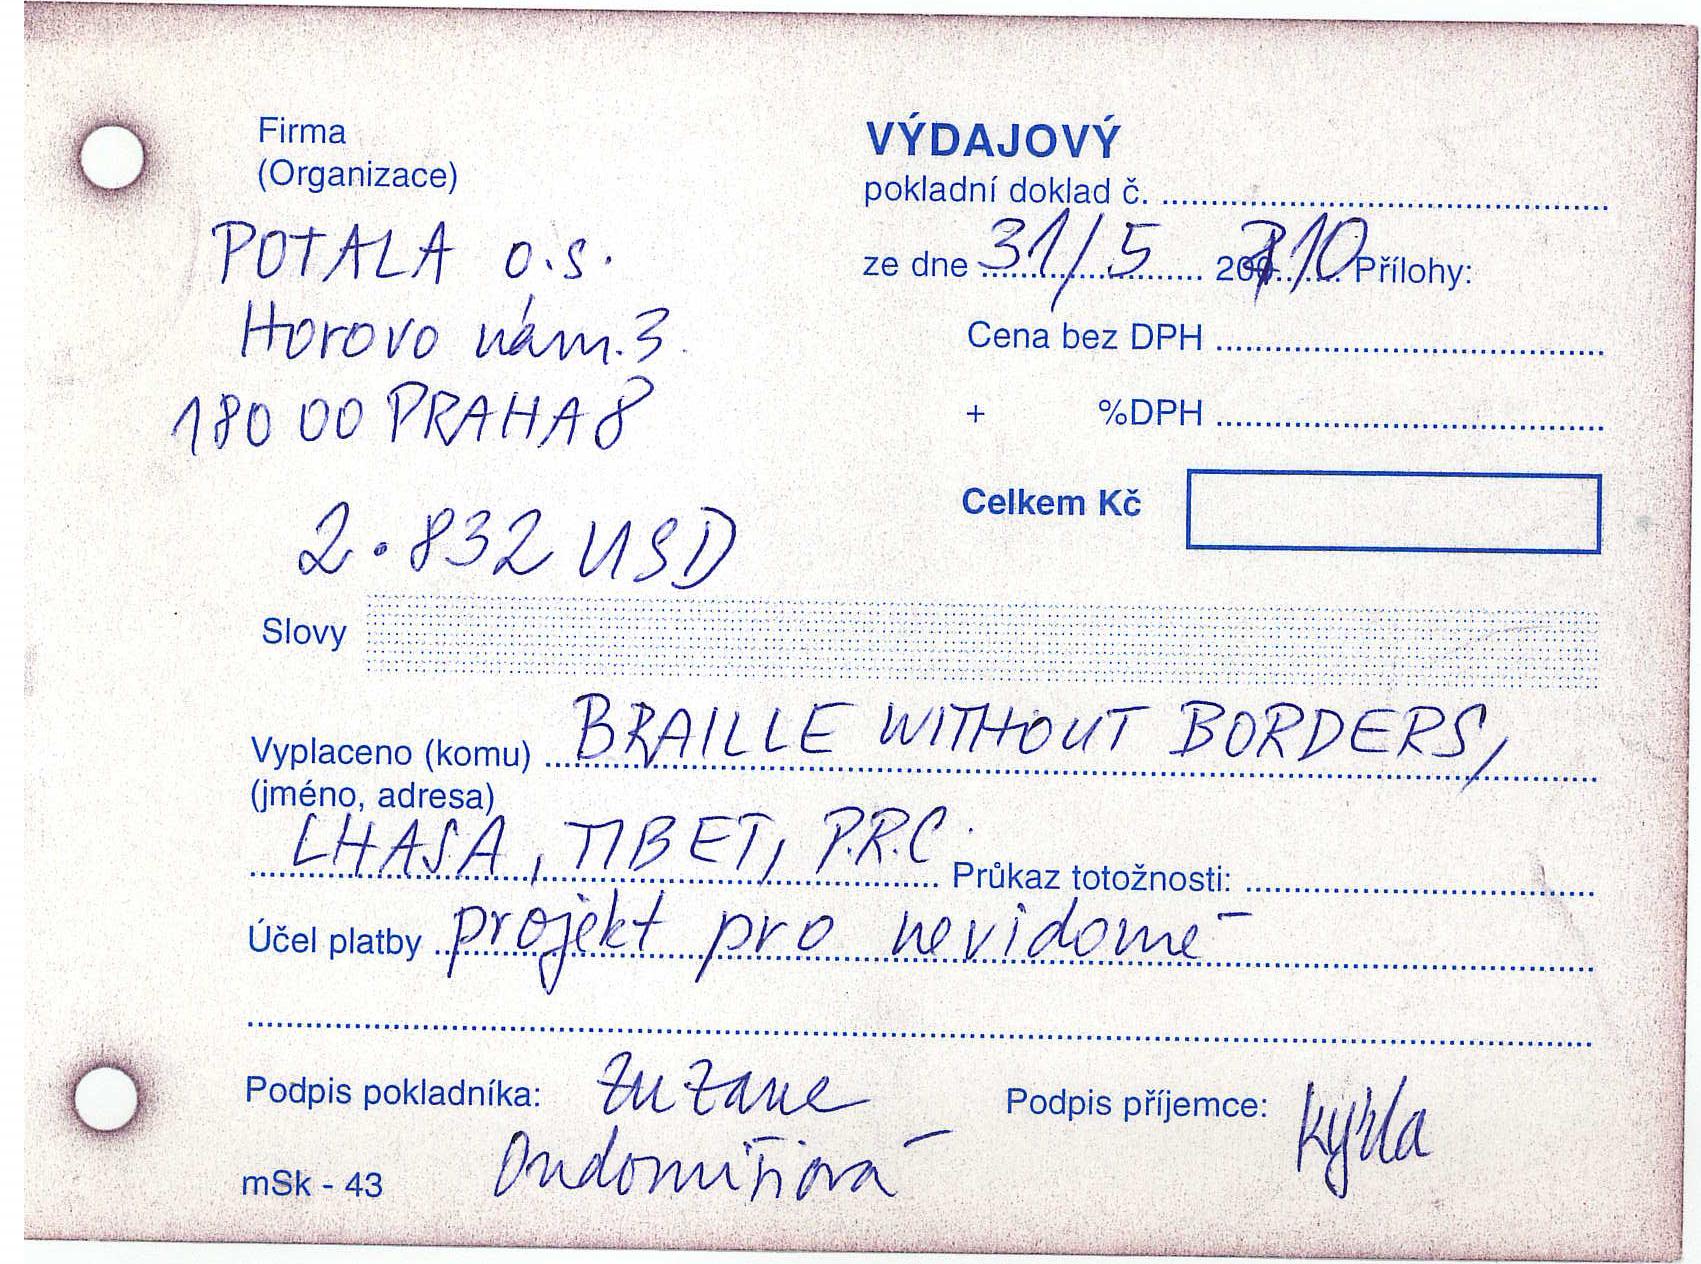 Firma
(Organizace)
POTALA o.s.
Horovo nám. 3.
180 00 PRAHA 8
VÝDAJOVÝ
pokladní doklad č.
ze dne 31/5 2010 Přílohy:
Cena bez DPH
+ %DPH
Celkem Kč
2.832 USD
Slovy
Vyplaceno (komu) BRAILLE WITHOUT BORDERS,
(jméno, adresa)
LHASA, TIBET, P.R.C. Průkaz totožnosti:
Účel platby projekt pro nevidomé
Podpis pokladníka: Zuzana
Ondomišiová
Podpis příjemce:
mSk - 43